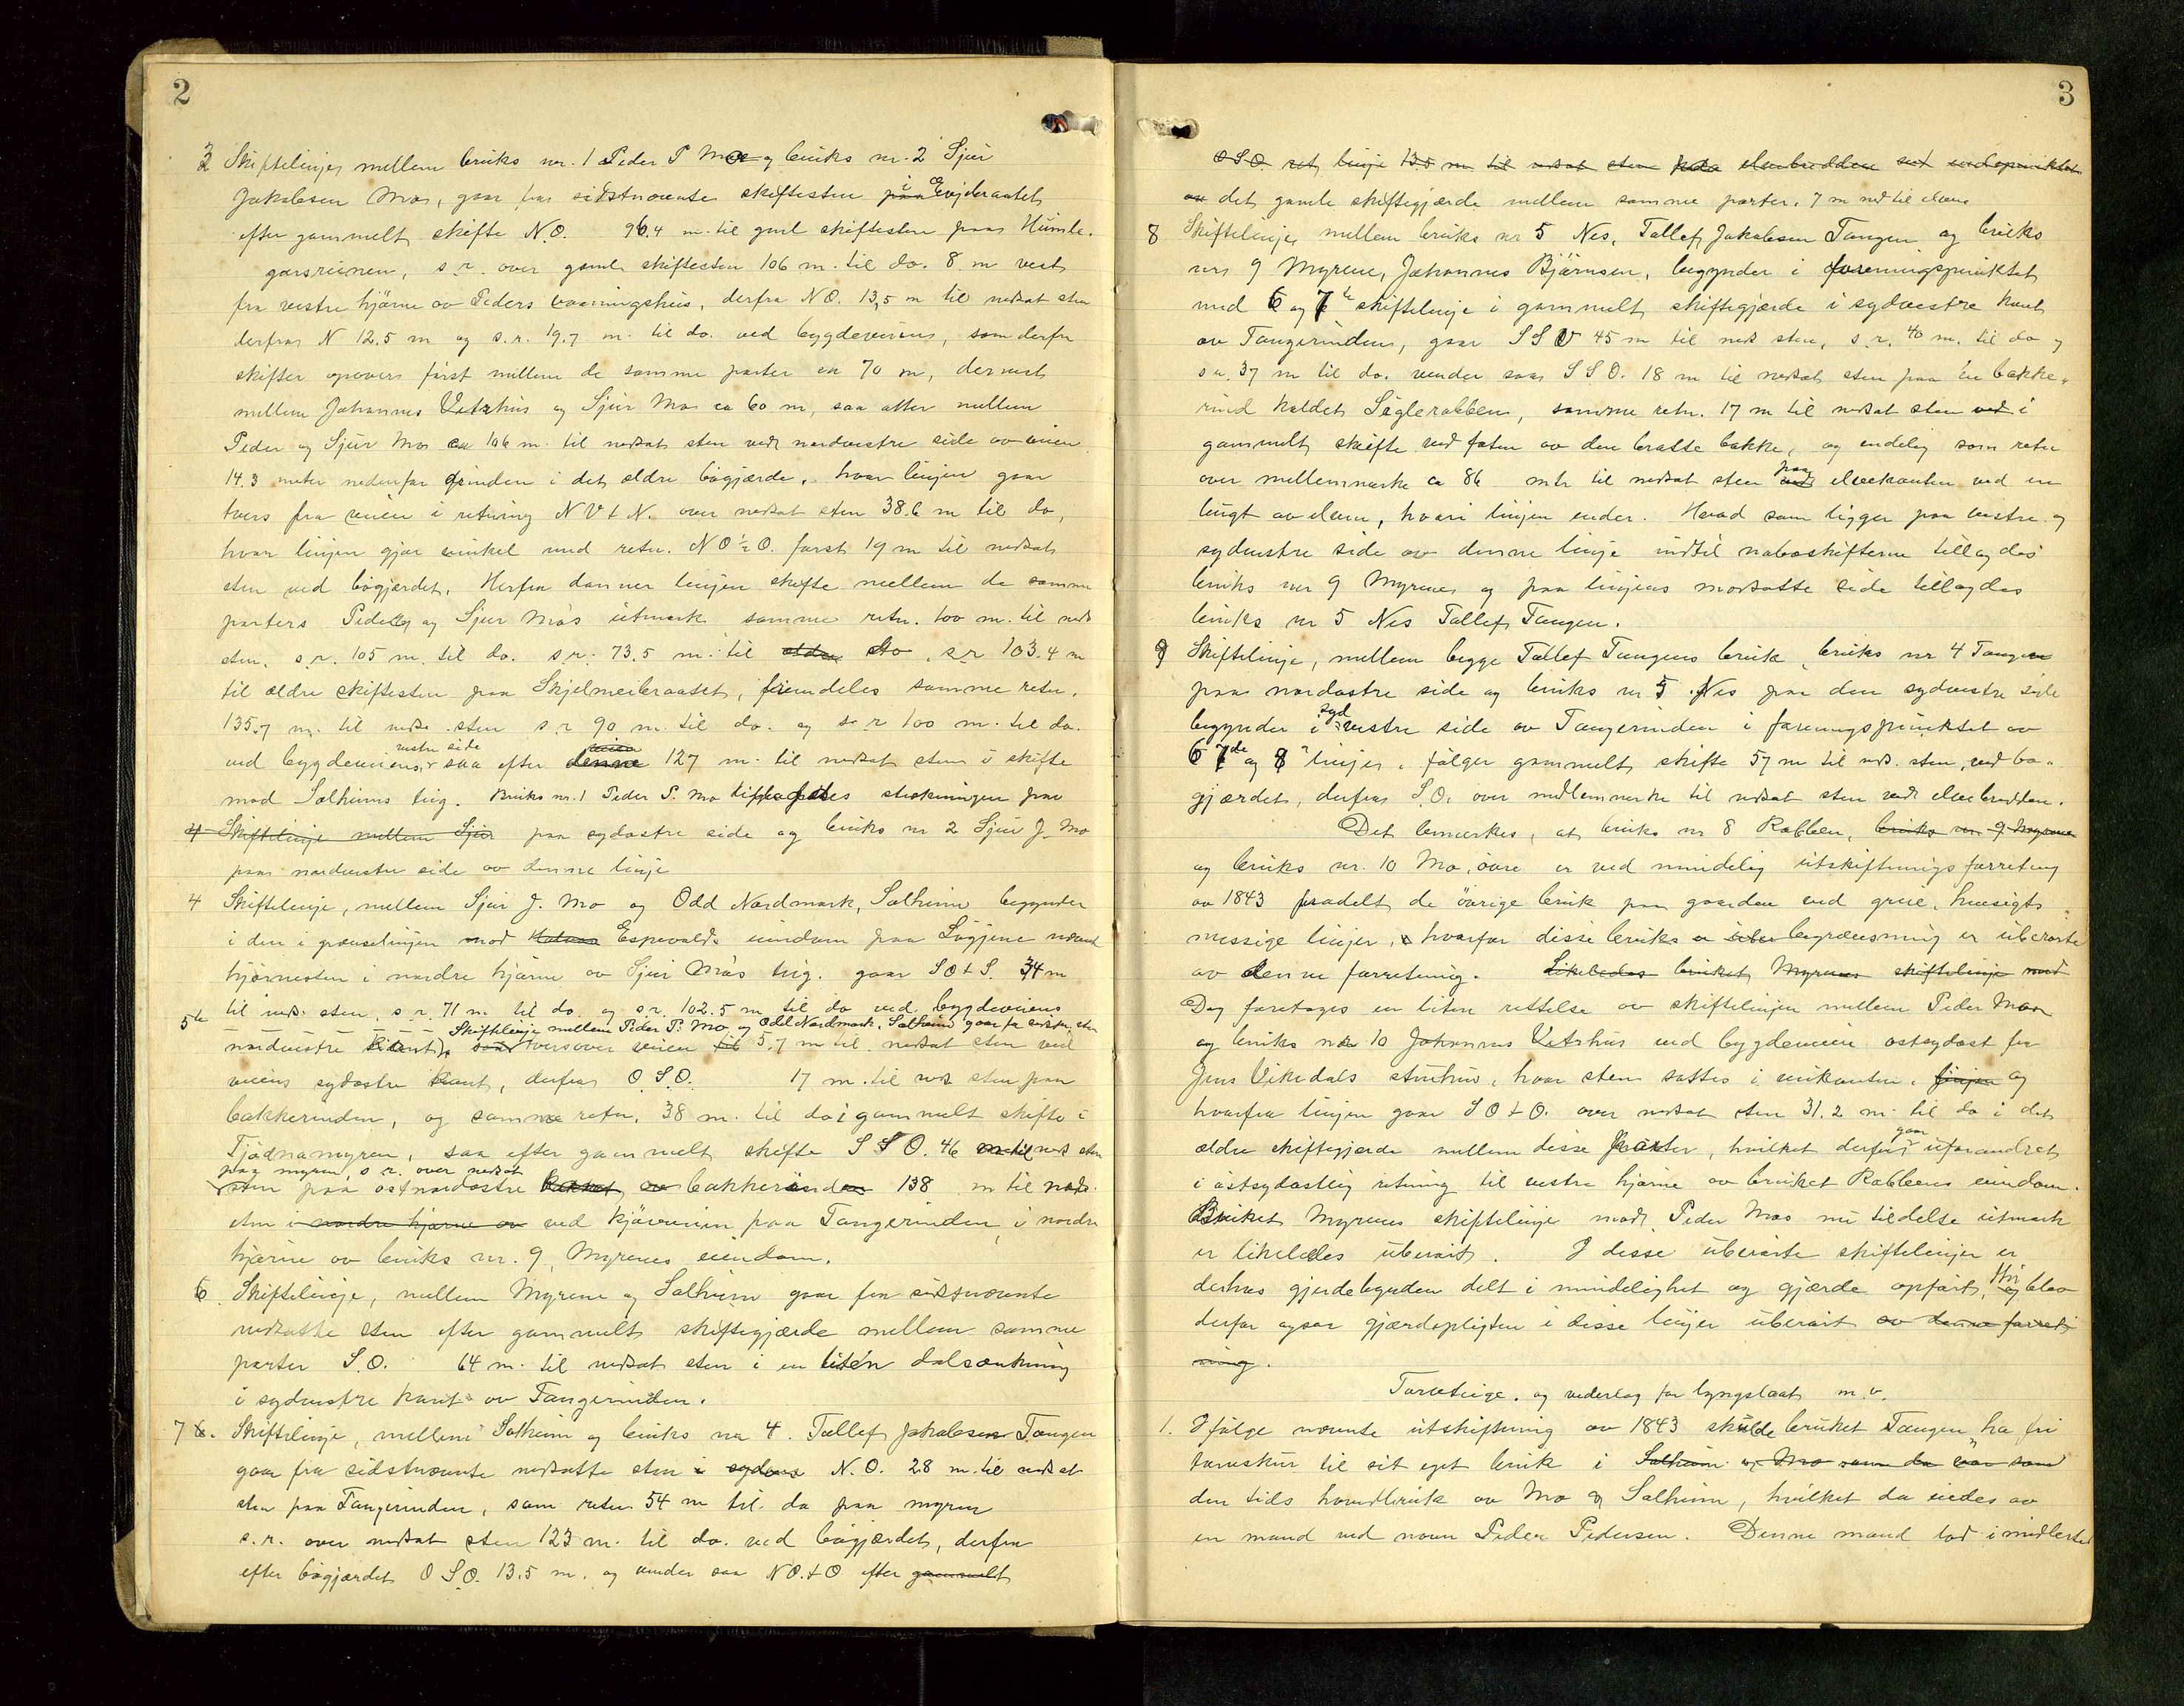 2
3 Skiftelinjer mellem bruks nr. 1 Peder P Mo og bruks nr. 2 Sjur
Jakobsen Mo, gaar fra sidstnævnte skiftesten paa i
efter gammelt skifte N.O. 96.4 m. til gml skiftesten paa Humle-
garsrinen, s.r. over gamle skiftesten 106 m. til do. 8 m vest
fra vestre hjørne av Peders vaaningshus, derfra NO. 13,5 m til nedsat sten
derfra N 12.5 m og s.r. 19.7 m. til do. ved bygdeveiens, som derfra
skifter opover først mellem de samme parter ca 70 m, dernest
mellem Johannes Vetrhus og Sjur Mo ca 60 m, saa atter mellem
Peder og Sjur Mo ca 106 m. til nedsat sten ved nordvestre side av veien
14.3 meter nedenfor grinden i det ældre bøgjærde, hvor linjen gaar
tvers fra veien i retning N V t N. over nedsat sten 38.6 m til do,
hvor linjen gjør vinkel med retn. N O ½ O. først 19 m til nedsat
sten ved bøgjærdet. Herfra danner linjen skifte mellem de samme
parters Peder og Sjur Mo's utmark samme retn. 100 m. til neds
sten, s.r. 105 m. til do. s.r. 73.5 m. til ældre sto, s.r 103.4 m
til ældre skiftesten paa Skjelmeibraatet, fremdeles samme retn.
135.7 m. til neds. sten s.r 90 m. til do. og s.r 100 m. til do.
vestre side veien
ved bygdeveiens saa efter denne 127 m. til nedsat sten i skifte
mod Solheims teig. Bruks nr. 1 Peder P. Mo tillægges strækningen paa
4 Skiftelinje mellem Sjur paa sydøstre side og bruks nr 2 Sjur J. Mo
paa nordvestre side av denne linje
4 Skiftelinje, mellem Sjur J. Mo og Odd Nordmark, Solheim begynder
i den i grænselinjen mod Espevolds eiendom paa Løgjene nævnt
hjørnesten i nordre hjørne av Sjur Mo's teig. gaar SO t S. 34 m
til neds. sten, s.r. 71 m. til do. og s.r. 102.5 m. til do ved bygdeveiens
5te Skiftelinje mellem Peder P. Mo og Odd Nordmark, Solheim gaar fra sidstn. sten
nordvestre kant, saa tversover veien til 5.7 m til nedsat sten ved
veiens sydøstre kant, derfra O.S.O. 17 m. til neds sten paa
bakkerinden, og samme retn. 38 m. til do i gammelt skifte i
Tjødnamyren, saa efter gammelt skifte S S O. 46 m til neds sten
paa myren, s r. over nedsat
sten paa østnordøstre bakket av bakkerinden 138 m til neds.
sten i nordre hjørne av ved kjøreveien paa Tangerinden, i nordre
hjørne av bruks nr. 9, Myrenes eiendom.
6 Skiftelinje, mellem Myrene og Solheim gaar fra sidstnævnte
nedsatte sten efter gammelt skiftegjærde mellem samme
parter S.O. 64 m. til nedsat sten i en liten dalsænkning
i sydvestre kant av Tangerinden.
7 6. Skiftelinje, mellem Solheim og bruks nr 4. Tollef Jakobsen Tangen
gaar fra sidstnævnte nedsatte sten i sydøst N.O. 28 m. til nedsat
sten paa Tangerinden, sam retn 54 m til do paa myren
s.r. over nedsat sten 123 m. til do. ved bøgjærdet, derfra
efter bøgjærdet O S.O. 13.5 m. og vender saa NO. t O efter gammelt
3
O S.O. ret linje 13.5 m til nedsat sten paa elvebredden ved endepunktet
av det gamle skiftegjærde mellem samme parter, 7 m ned til elven
8 Skiftelinje, mellem bruks nr 5 Nes, Tollef Jakobsen Tangen og bruks
nr 9 Myrene, Johannes Bjørnsen, begynder i foreningspunktet
med 6 og 7de skiftelinje i gammelt skiftegjærde i sydvestre kant
av Tangerinden, gaar S S V 45 m til neds sten, s.r. 40 m. til do og
s.r. 37 m til do. vender saa S S O. 18 m til nedsat sten paa en bakke-
rind kaldet Siglerabben, samme retn. 17 m til nedsat sten ved i
gammelt skifte ved foten av den bratte bakke, og endelig sam retn
paa
over mellemmerke ca 86 mtr til nedsat sten ved elvekanten ved en
bugt av elven, hvori linjen ender. Hvad som ligger paa vestre og
sydvestre side av denne linje indtil naboskifterne tillægdes
bruks nr 9 Myrene og paa linjens motsatte side tillægdes
bruks nr 5 Nes Tollef Tangen.
9 Skiftelinje, mellem begge Tollef Tangens bruk, bruks nr 4 Tangen
paa nordøstre side og bruks nr 5 Nes paa den sydvestre side
syd
begynder i vestre side av Tangerinden i foreningspunktet av
6 7de og 8 linjer, følger gammelt skifte 57 m til neds. sten, ved bø-
gjærdet, derfra S.O. over mellemmerke til nedsat sten ved elvebredden.
Det bemerkes, at bruks nr 8 Rabben, bruks nr. 9 Myrene
og bruks nr. 10 Mo, øvre er ved mindelig utskiftningsforretning
av 1843 fradelt de øvrige bruk paa gaarden ved greie, hensigts
messige linjer, hvorfor disse bruks begrænsning er uberørt
av denne forretning. Likeledes bruket Myrenes skiftelinje mod
Dog foretages en liten rettelse av skiftelinjen mellem Peder Mo
og bruks nr 10 Johannes Vetrhus ved bygdeveien ostsydost for
Jens Vikedals stuehus, hvor sten sattes i veikanten, linjen og
hvorfra linjen gaar S O t O. over nedsat sten 31.2 m. til do i det
gaar
ældre skiftegjerde mellem disse parter, hvilket derfra uforandret
i ostsydostlig retning til vestre hjørne av bruket Rabbens eiendom.
Bruket Myrenes skiftelinje mod Peder Mo's nu tildelte utmark
er likeledes uberørt. I disse uberørte skiftelinjer er
derhos gjerdebyrden delt i mindelighet og gjærde opført, og blev
derfor ogsaa gjærdepligten i disse linjer uberørt av denne forret-
ning.
Torvteige. og vederlag for lyngslaat m.v.
1. Ifølge nævnte utskiftning av 1843 skulde bruket Tangen "ha fri
torvskur til sit eget bruk i Solheim og Mo som da var som
den tids hovedbruk av Mo og Solheim, hvilket da eiedes av
en mand ved navn Peder Pedersen. Denne mand lod imidlertid